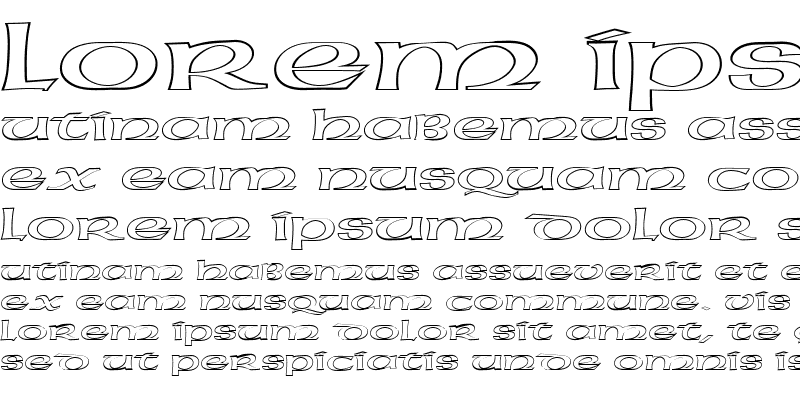 Lorem ips
utinam habemus ass
ex eam nusquam co
Lorem ipsum dolor s
utinam habemus assueverit et e
ex eam nusquam commune. vis
Lorem ipsum dolor sit amet, te
sed ut perspiciatis unde omnis is